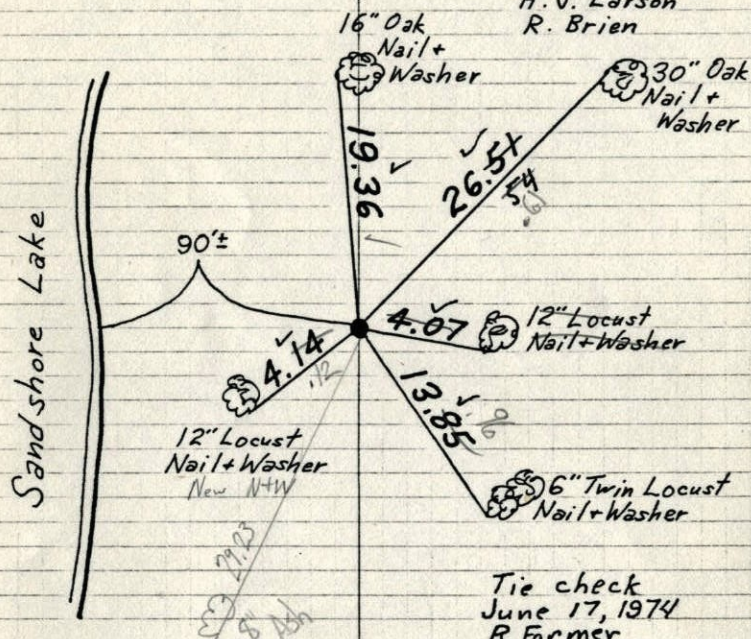 H. V. Larson
R. Brien
16" Oak
Nail +
Washer
30" Oak
Nail +
Washer
19.36
26.51
54
Sandshore Lake
90'±
4.07
12" Locust
Nail + Washer
4.14
.12
13.85
12" Locust
Nail + Washer
New N+W
6" Twin Locust
Nail + Washer
29.23
8" Ash
Tie check
June 17, 1974
R Farmer